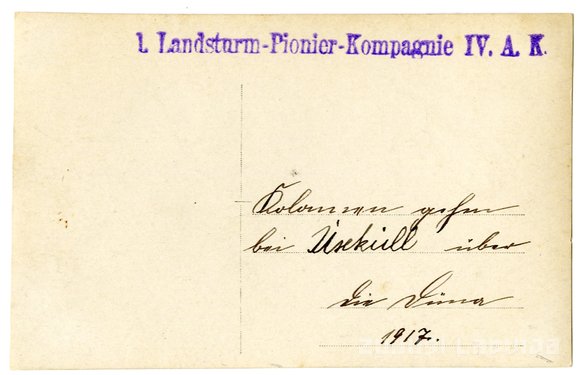 1. Landsturm-Pionier-Kompagnie IV. A. K.
Kolonnen gehen
bei Üxküll über
die Düna
1917.